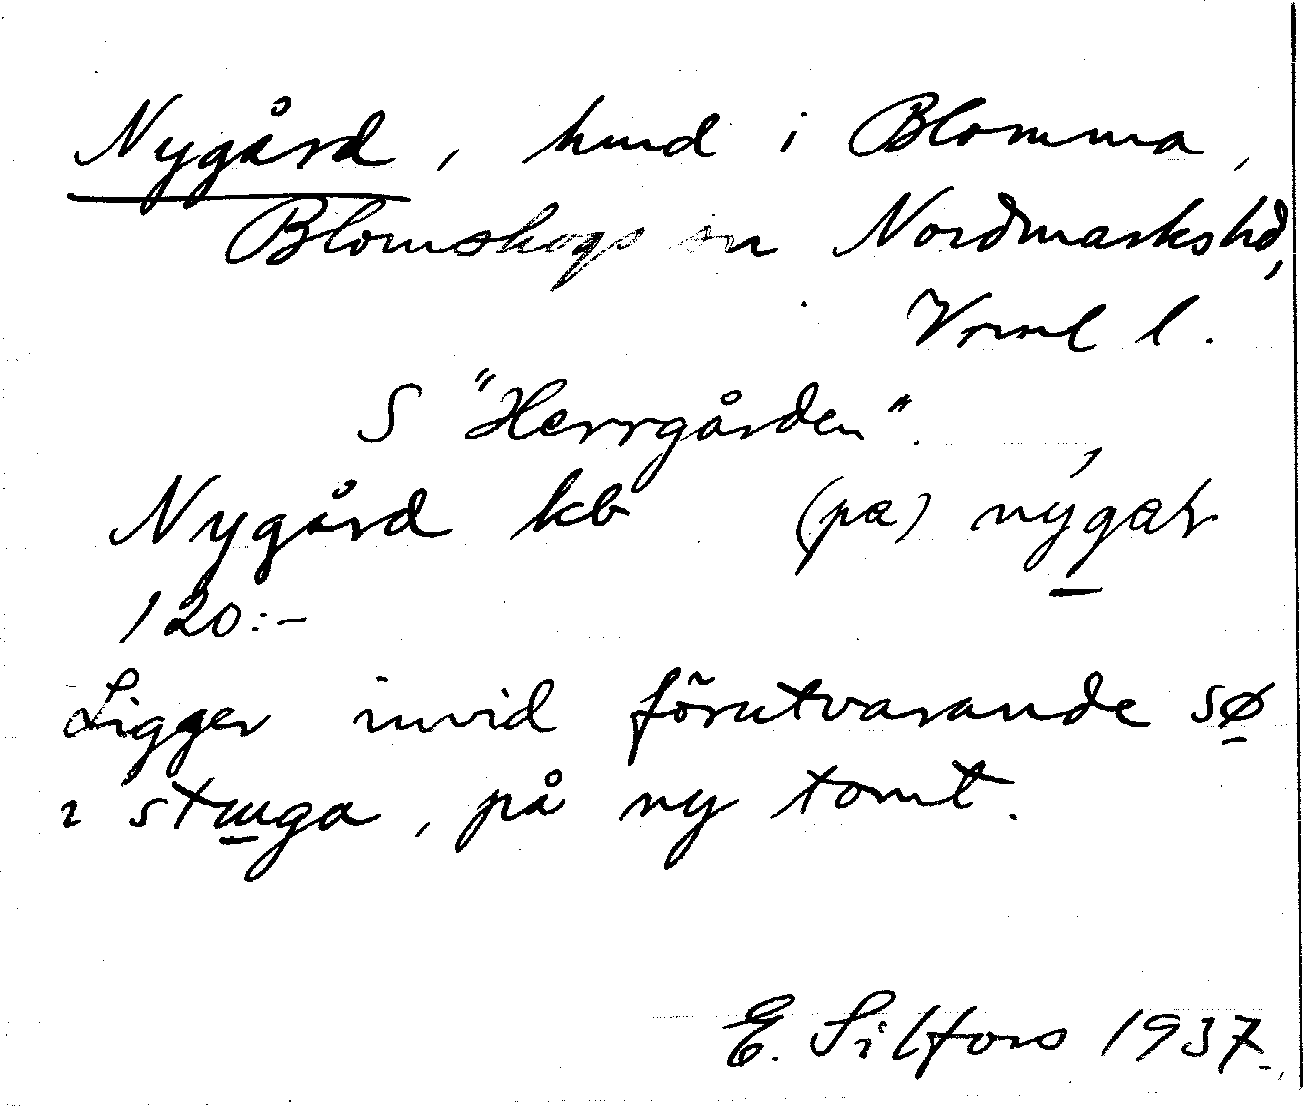 Nygård, hmd i Blomma,
Blomskogs sn Nordmarks hd,
Vrml l.
S "Herrgården".
Nygård kb (pa)
120:-
Ligger invid förutvarande sø
i stuga, på ny tomt.
E. Silfors 1937.